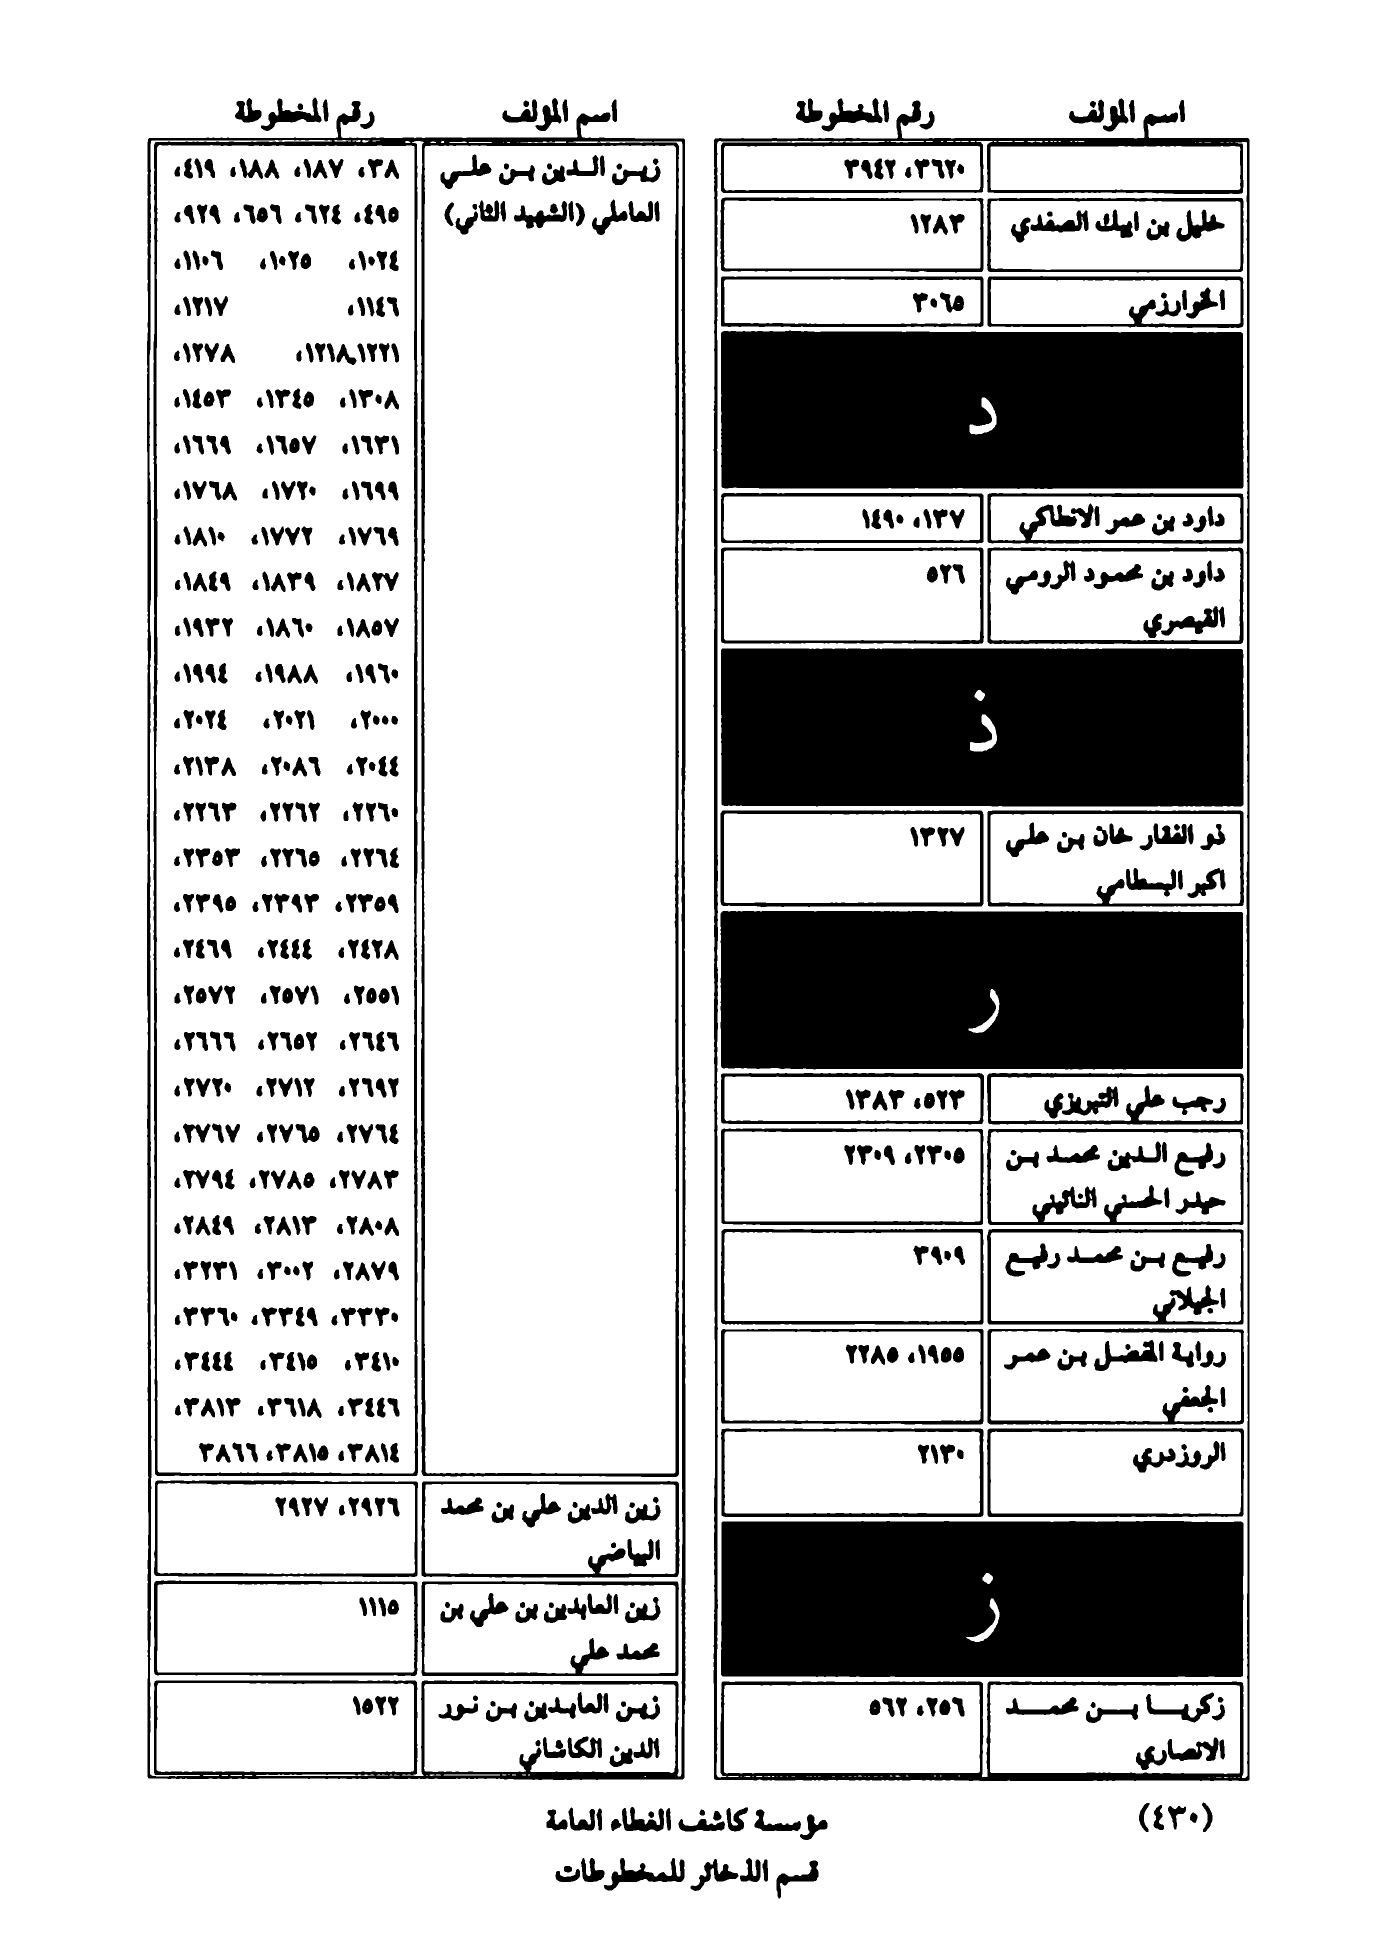 اسم المؤلف رقم المخطوطة
٣٦٢٠، ٣٩٤٢
خليل بن ايبك الصفدي ١٢٨٣
الخوارزمي ٣٠٦٥
د
داود بن عمر الانطاكي ١٣٧، ١٤٩٠
داود بن محمود الرومي ٥٢٦
القيصري
ذ
ذو الفقار خان بن علي ١٣٢٧
اكبر البسطامي
ر
رجب علي التبريزي ٥٢٣، ١٣٨٣
رفيع الدين محمد بن ٢٣٠٥، ٢٣٠٩
حيدر الحسني النائيني
رفيع بن محمد رفيع ٣٩٠٩
الجيلاني
رواية المفضل بن عمر ١٩٥٥، ٢٢٨٥
الجعفي
الروزدري ٢١٣٠
ز
زكريا بن محمد ٢٥٦، ٥٦٢
الانصاري
اسم المؤلف رقم المخطوطة
زين الدين بن علي ٣٨، ١٨٧، ١٨٨، ٤١٩،
العاملي (الشهيد الثاني) ٤٩٥، ٦٢٤، ٦٥٦، ٩٢٩،
١٠٢٤، ١٠٢٥، ١١٠٦،
١١٤٦، ١٢١٧،
١٢٢١,١٢١٨، ١٢٧٨،
١٣٠٨، ١٣٤٥، ١٤٥٣،
١٦٣١، ١٦٥٧، ١٦٦٩،
١٦٩٩، ١٧٢٠، ١٧٦٨،
١٧٦٩، ١٧٧٢، ١٨١٠،
١٨٢٧، ١٨٣٩، ١٨٤٩،
١٨٥٧، ١٨٦٠، ١٩٣٢،
١٩٦٠، ١٩٨٨، ١٩٩٤،
٢٠٠٠، ٢٠٢١، ٢٠٢٤،
٢٠٤٤، ٢٠٨٦، ٢١٣٨،
٢٢٦٠، ٢٢٦٢، ٢٢٦٣،
٢٢٦٤، ٢٢٦٥، ٢٣٥٣،
٢٣٥٩، ٢٣٩٣، ٢٣٩٥،
٢٤٢٨، ٢٤٤٤، ٢٤٦٩،
٢٥٥١، ٢٥٧١، ٢٥٧٢،
٢٦٤٦، ٢٦٥٢، ٢٦٦٦،
٢٦٩٢، ٢٧١٢، ٢٧٢٠،
٢٧٦٤، ٢٧٦٥، ٢٧٦٧،
٢٧٨٣، ٢٧٨٥، ٢٧٩٤،
٢٨٠٨، ٢٨١٣، ٢٨٤٩،
٢٨٧٩، ٣٠٠٢، ٣٢٣١،
٣٣٣٠، ٣٣٤٩، ٣٣٦٠،
٣٤١٠، ٣٤١٥، ٣٤٤٤،
٣٤٤٦، ٣٦١٨، ٣٨١٣،
٣٨١٤، ٣٨١٥، ٣٨٦٦
زين الدين علي بن محمد ٢٩٢٦، ٢٩٢٧
البياضي
زين العابدين بن علي بن ١١١٥
محمد علي
زين العابدين بن نور ١٥٢٢
الدين الكاشاني
(٤٣٠)
مؤسسة كاشف الغطاء العامة
قسم الذخائر للمخطوطات